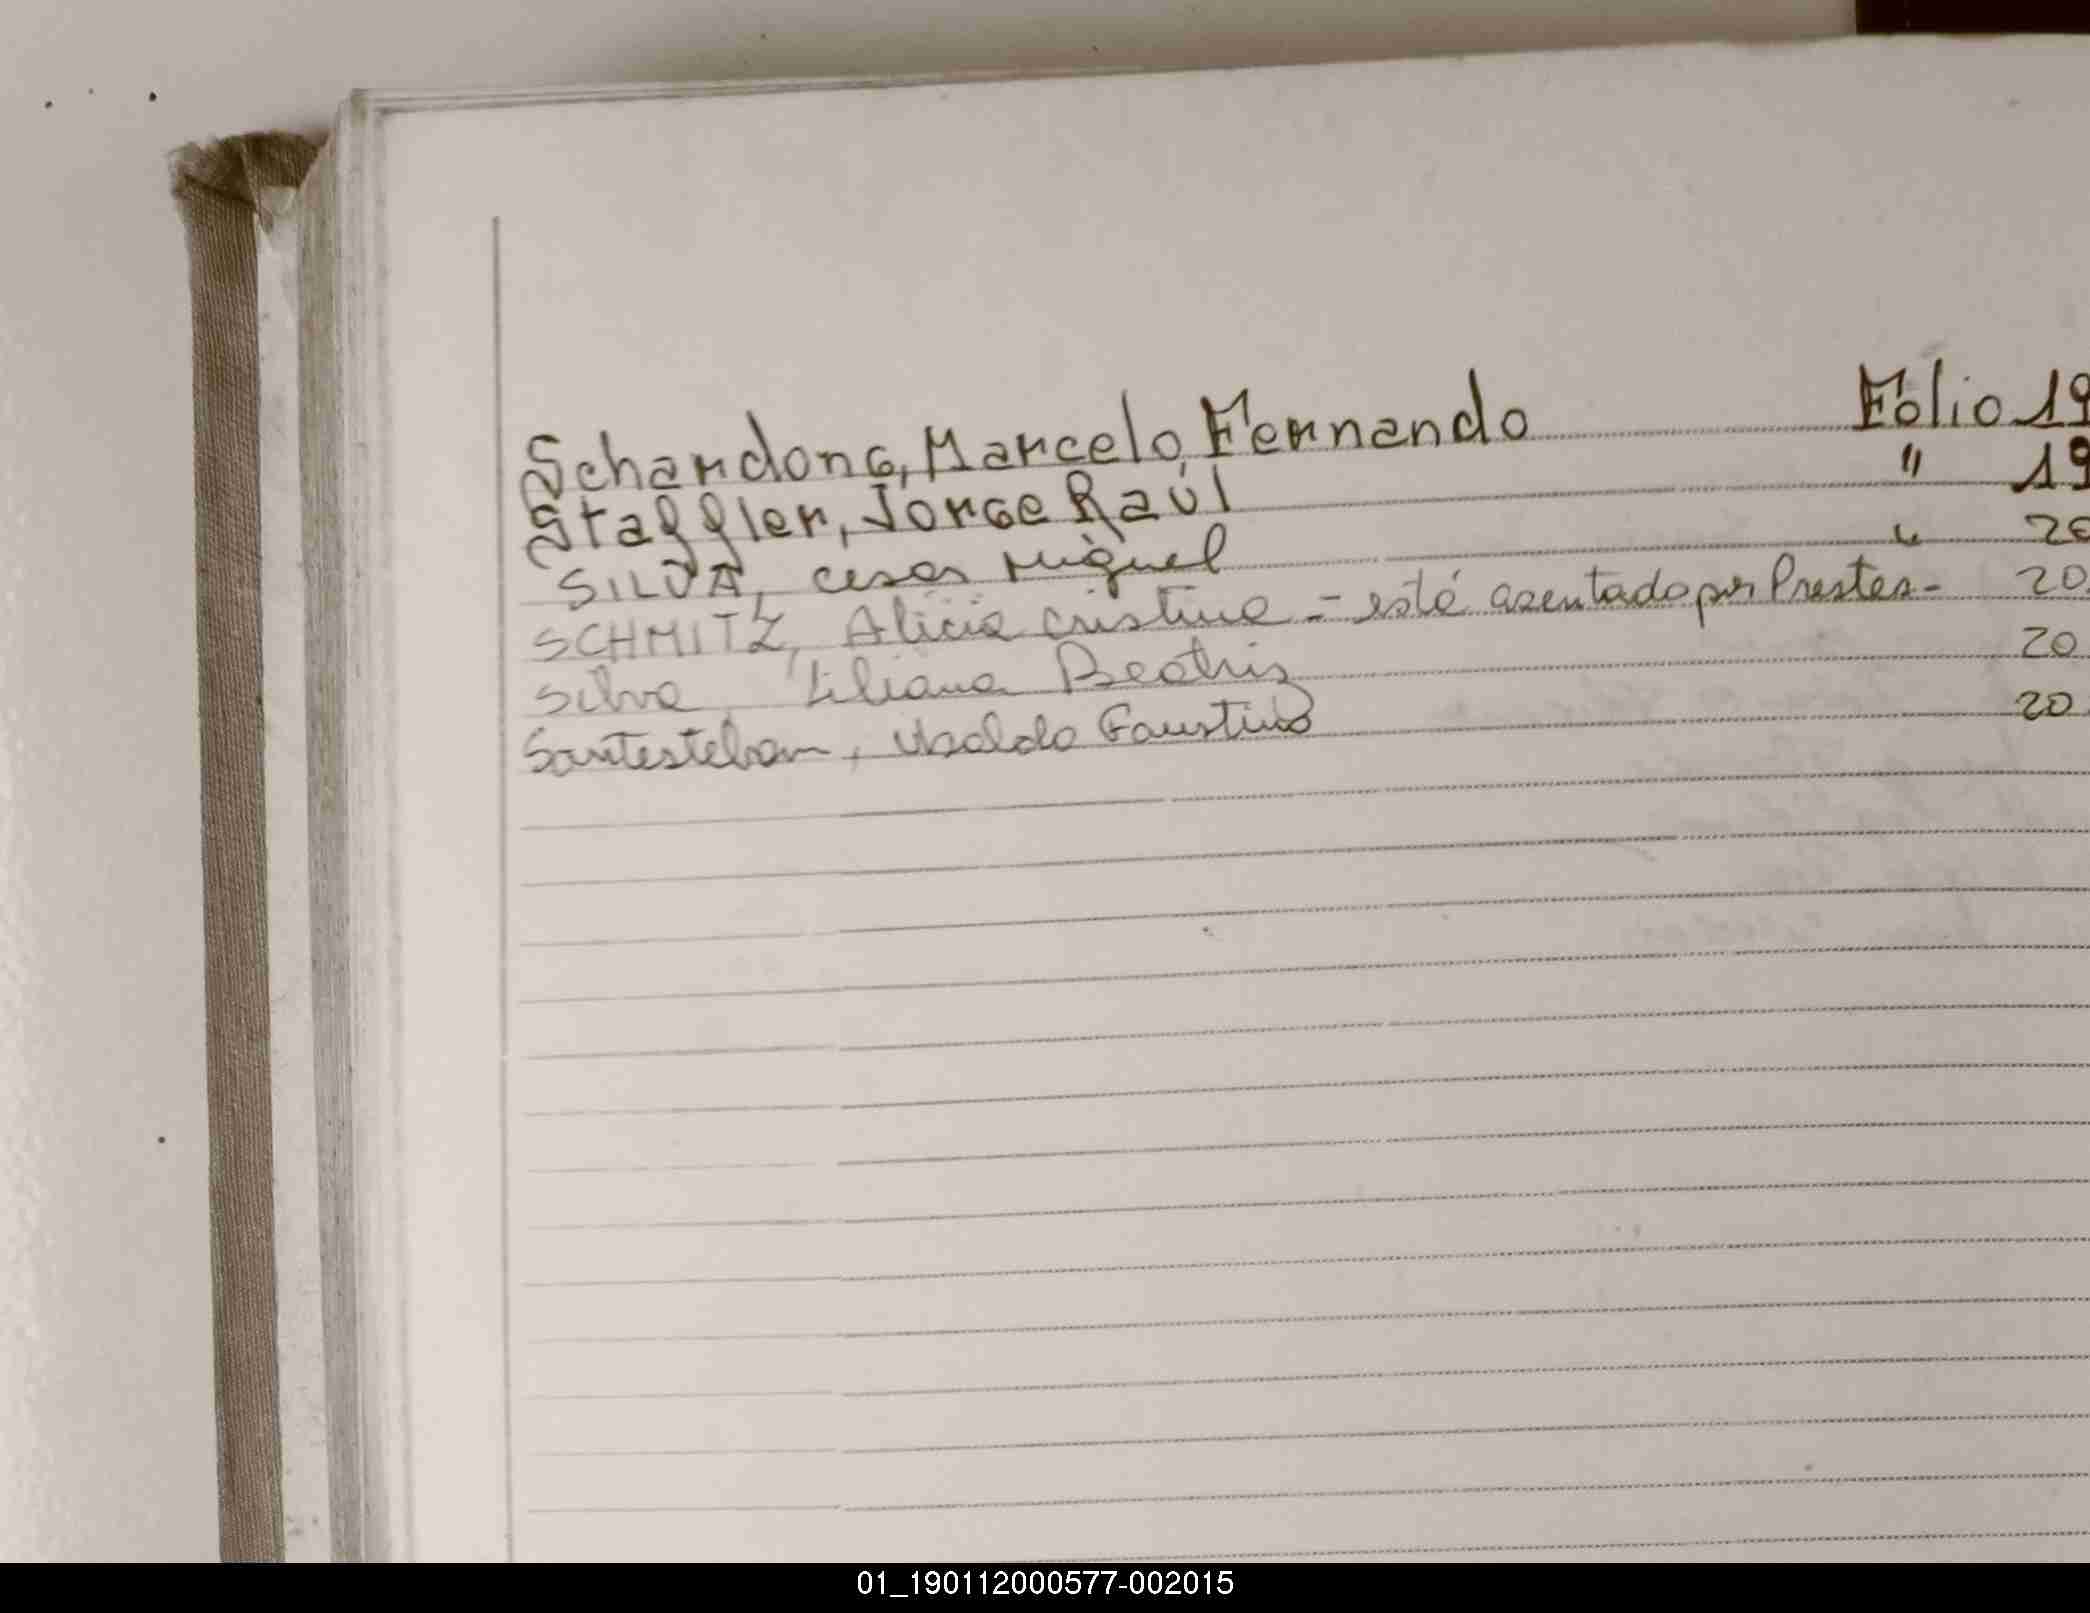 Schardong, Marcelo Fernando Folio 19
Staffler, Jorge Raúl " 19
SILVA, Cesar Miguel " 20
SCHMITZ, Alicia Cristina = está asentado por Prestes - 20
Silva, Liliana Beatriz 20
Santesteban, Ubaldo Faustino 20
01_190112000577-002015